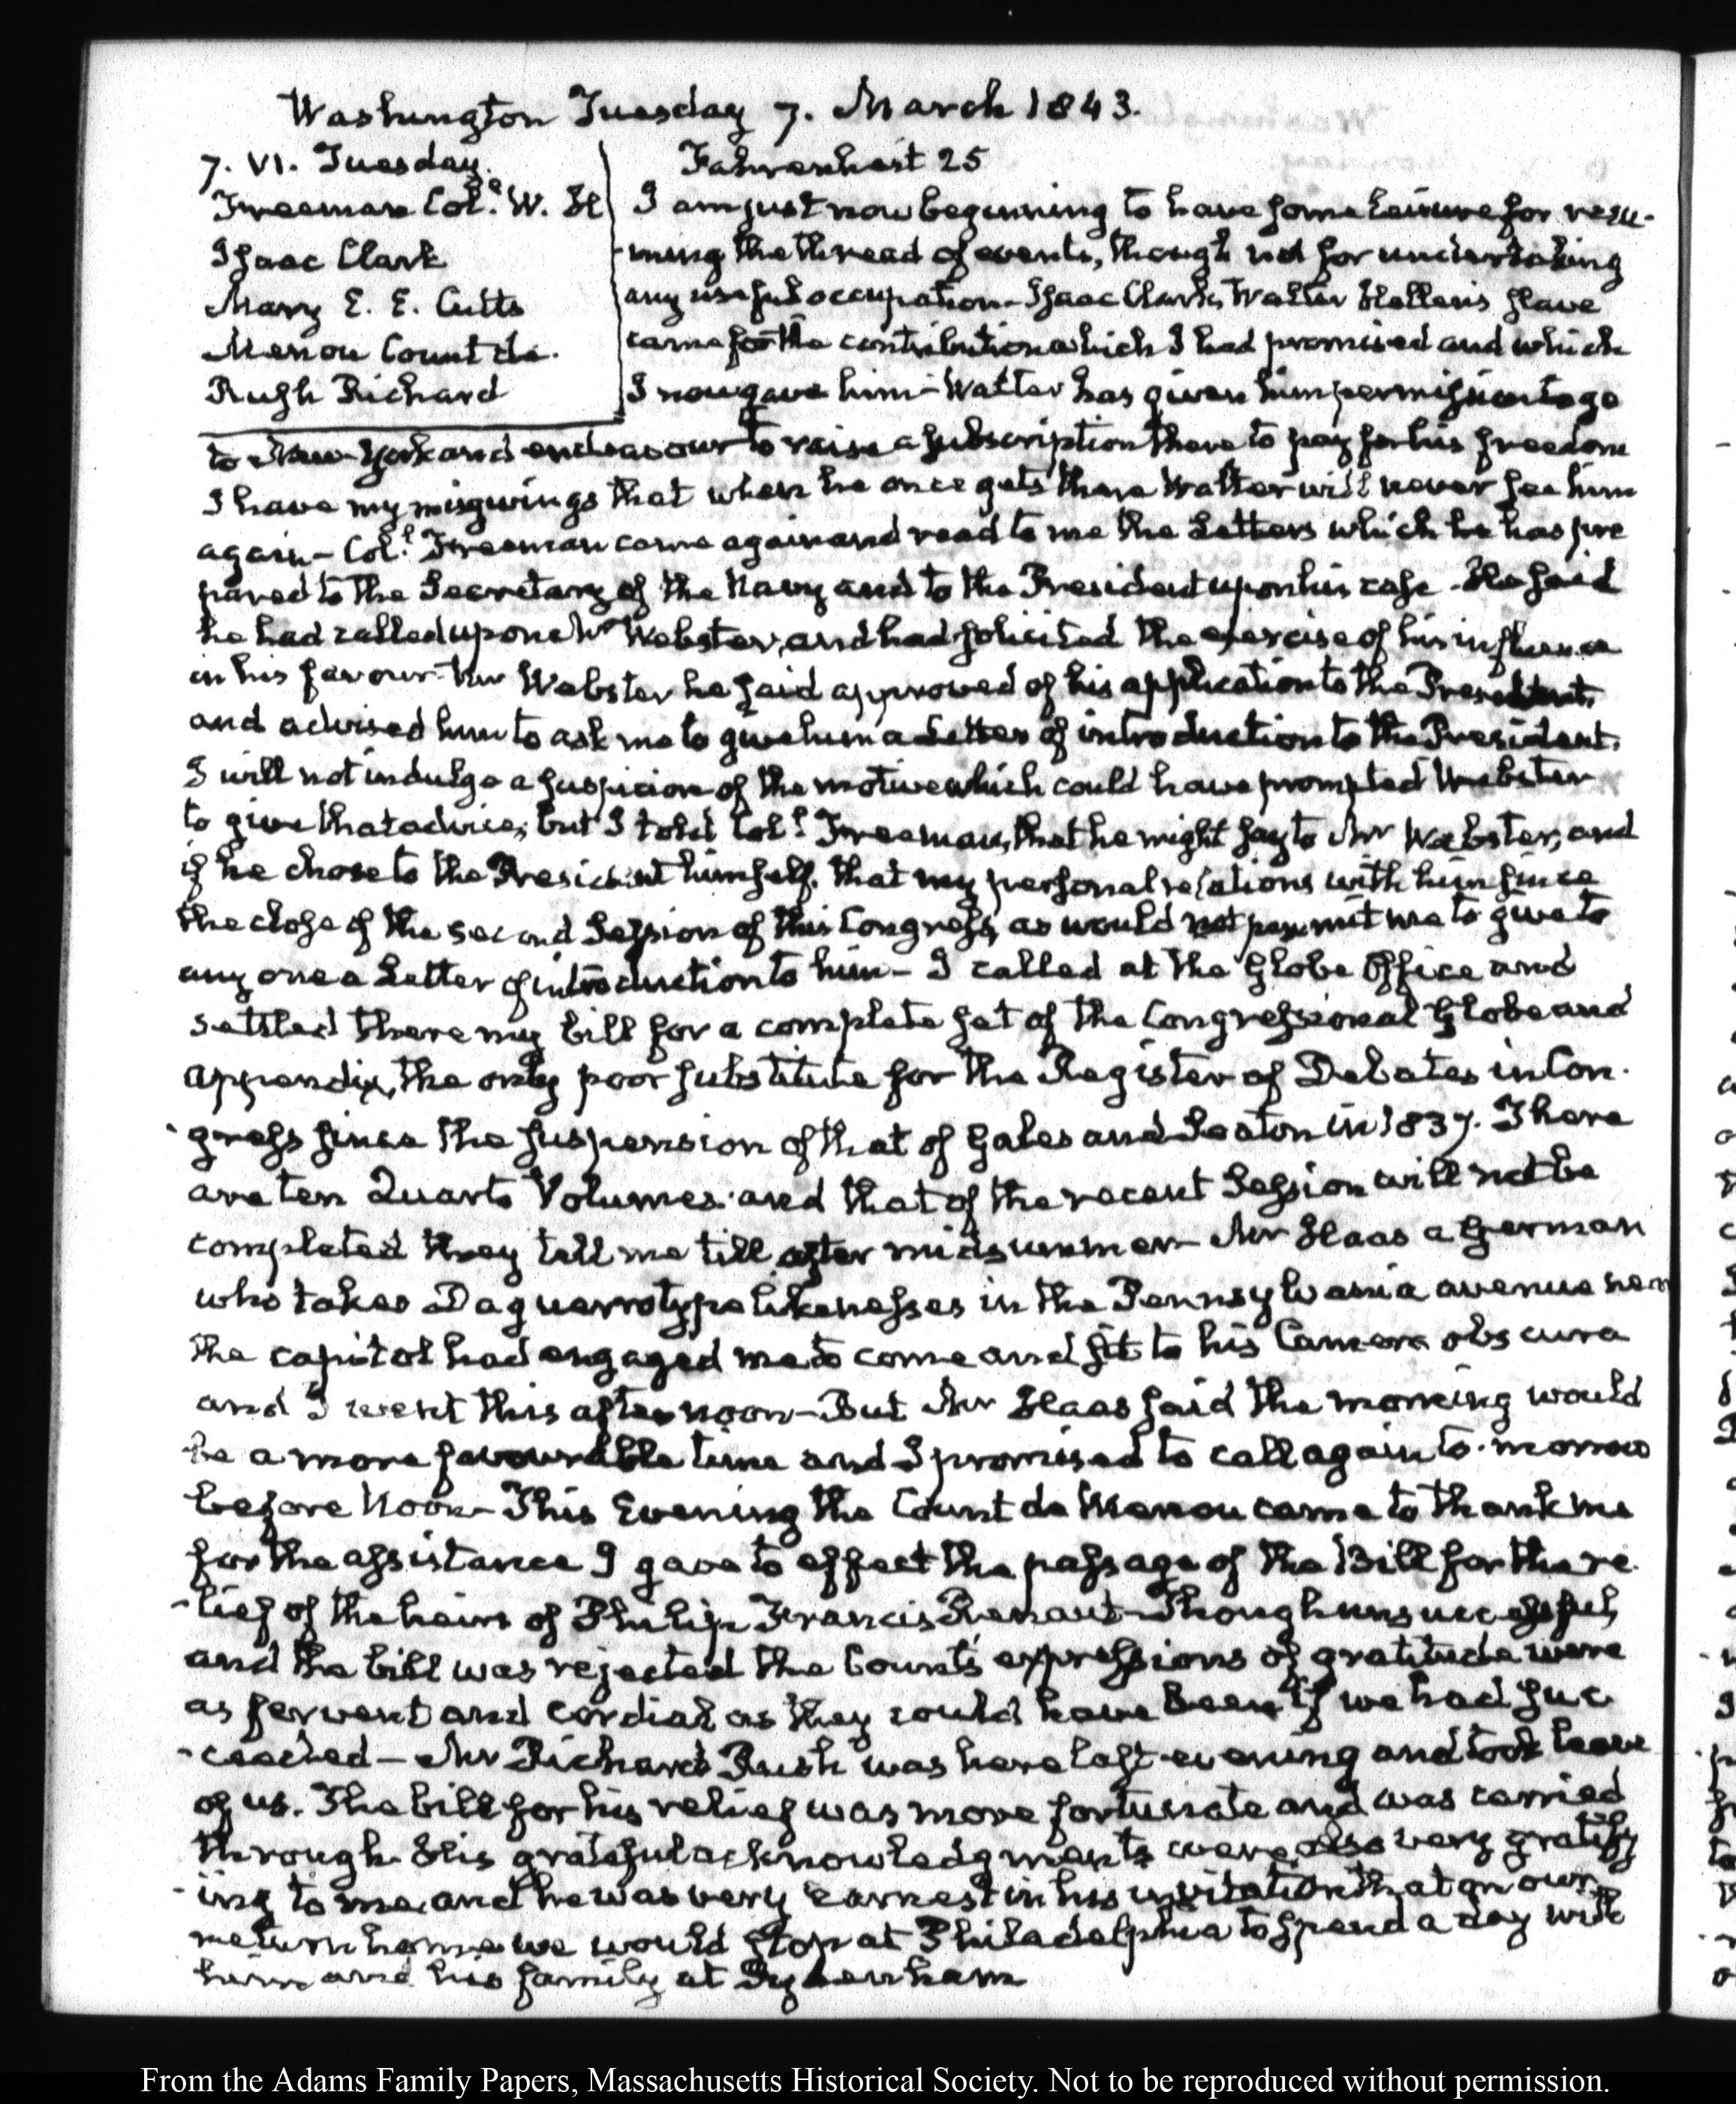 Washington Tuesday 7. March 1843.
7. VI. Tuesday.
Freeman Col.l W. H
Isaac Clark
Mary E. E. Cutts
Menou Count de.
Rush Richard
Fahrenheit 25
I am just now beginning to have some leisure for resu-
-ming the thread of events, though not for undertaking
any useful occupation - Isaac Clark, Walter Hellen's slave
came for the contribution which I had promised and which
I now gave him - Walter has given him permission to go
to New-York and endeavour to raise a subscription there to pay for his freedom
I have my misgivings that when he once gets there Walter will never see him
again - Col.l Freeman came again and read to me the Letters which he has pre
pared to the Secretary of the Navy and to the President upon his case - He said
he had called upon Mr Webster, and had solicited the exercise of his influence
in his favour - Mr Webster he said approved of his application to the President,
and advised him to ask me to give him a Letter of introduction to the President.
I will not indulge a suspicion of the motive which could have prompted Webster
to give that advice; but I told Col.l Freeman, that he might say to Mr Webster, and
if he chose to the President himself, that my personal relations with him since
the close of the second Session of this Congress, as would not permit me to give to
any one a Letter of introduction to him - I called at the Globe Office and
settled there my bill for a complete set of the Congressional Globe and
appendix, the only poor substitute for the Register of Debates in Con-
-gress since the suspension of that of Gales and Seaton in 1837. There
are ten Quarto Volumes and that of the recent Session will not be
completed they tell me till after midsummer - Mr Haas a German
who takes Daguerrotype likenesses in the Pennsylvania avenue near
the capitol had engaged me to come and sit to his Camera obscura
and I went this afternoon - But Mr Haas said the morning would
be a more favourable time and I promised to call again to-morrow
before Noon - This Evening the Count de Menou came to thank me
for the assistance I gave to effect the passage of the Bill for the re-
-lief of the heirs of Philip Francis Renaut - Though unsuccessful,
and the bill was rejected the Count's expressions of gratitude were
as fervent and cordial as they could have been if we had suc-
-ceeded - Mr Richard Rush was here last evening and took leave
of us. The bill for his relief was more fortunate and was carried
through. His grateful acknowledgments were also very gratify
-ing to me, and he was very earnest in his invitation that on our
return home we would stop at Philadelphia to spend a day with
him and his family at Sydenham
From the Adams Family Papers, Massachusetts Historical Society. Not to be reproduced without permission.